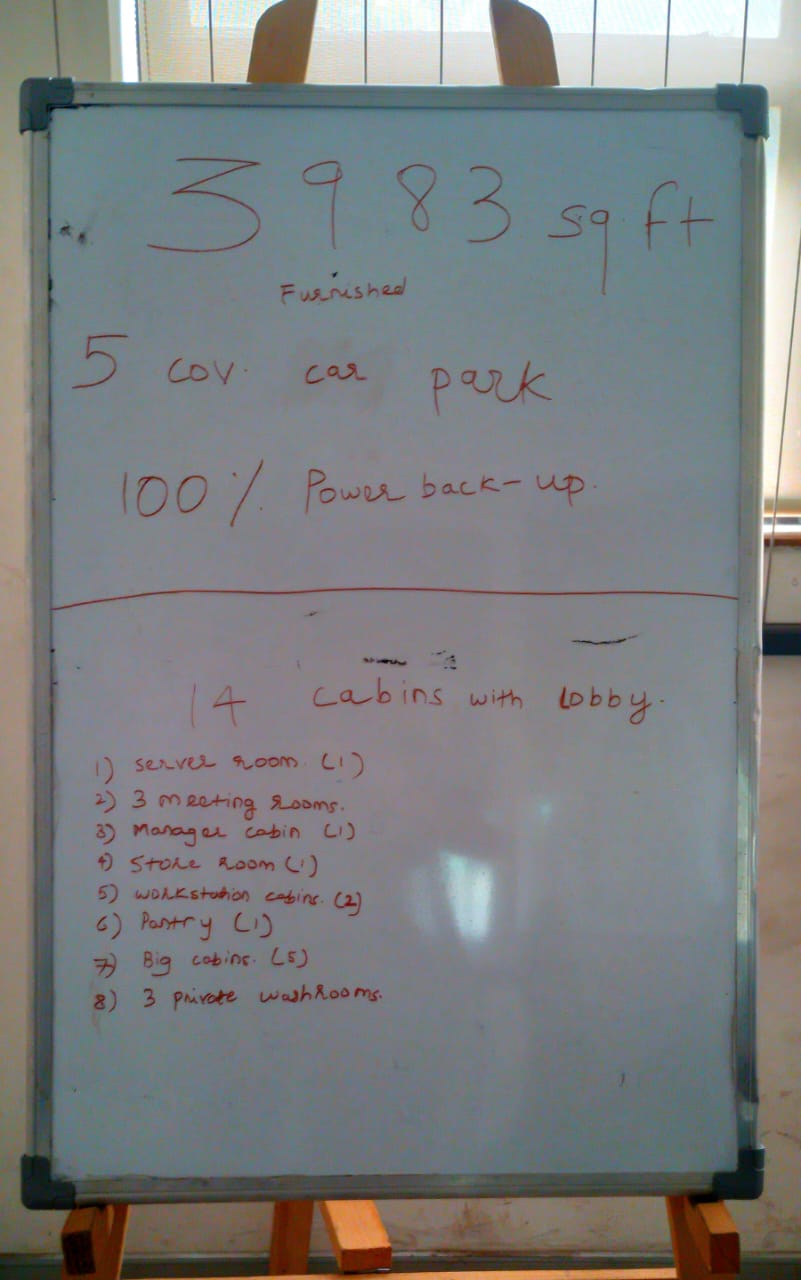 3983 sq. ft
Furnished
5 cov. car park
100% Power back-up.
14 cabins with Lobby.
1) server room. (1)
2) 3 meeting rooms.
3) Manager cabin (1)
4) Store room (1)
5) workstation cabins. (2)
6) Pantry (1)
7) Big cabins. (5)
8) 3 private washrooms.